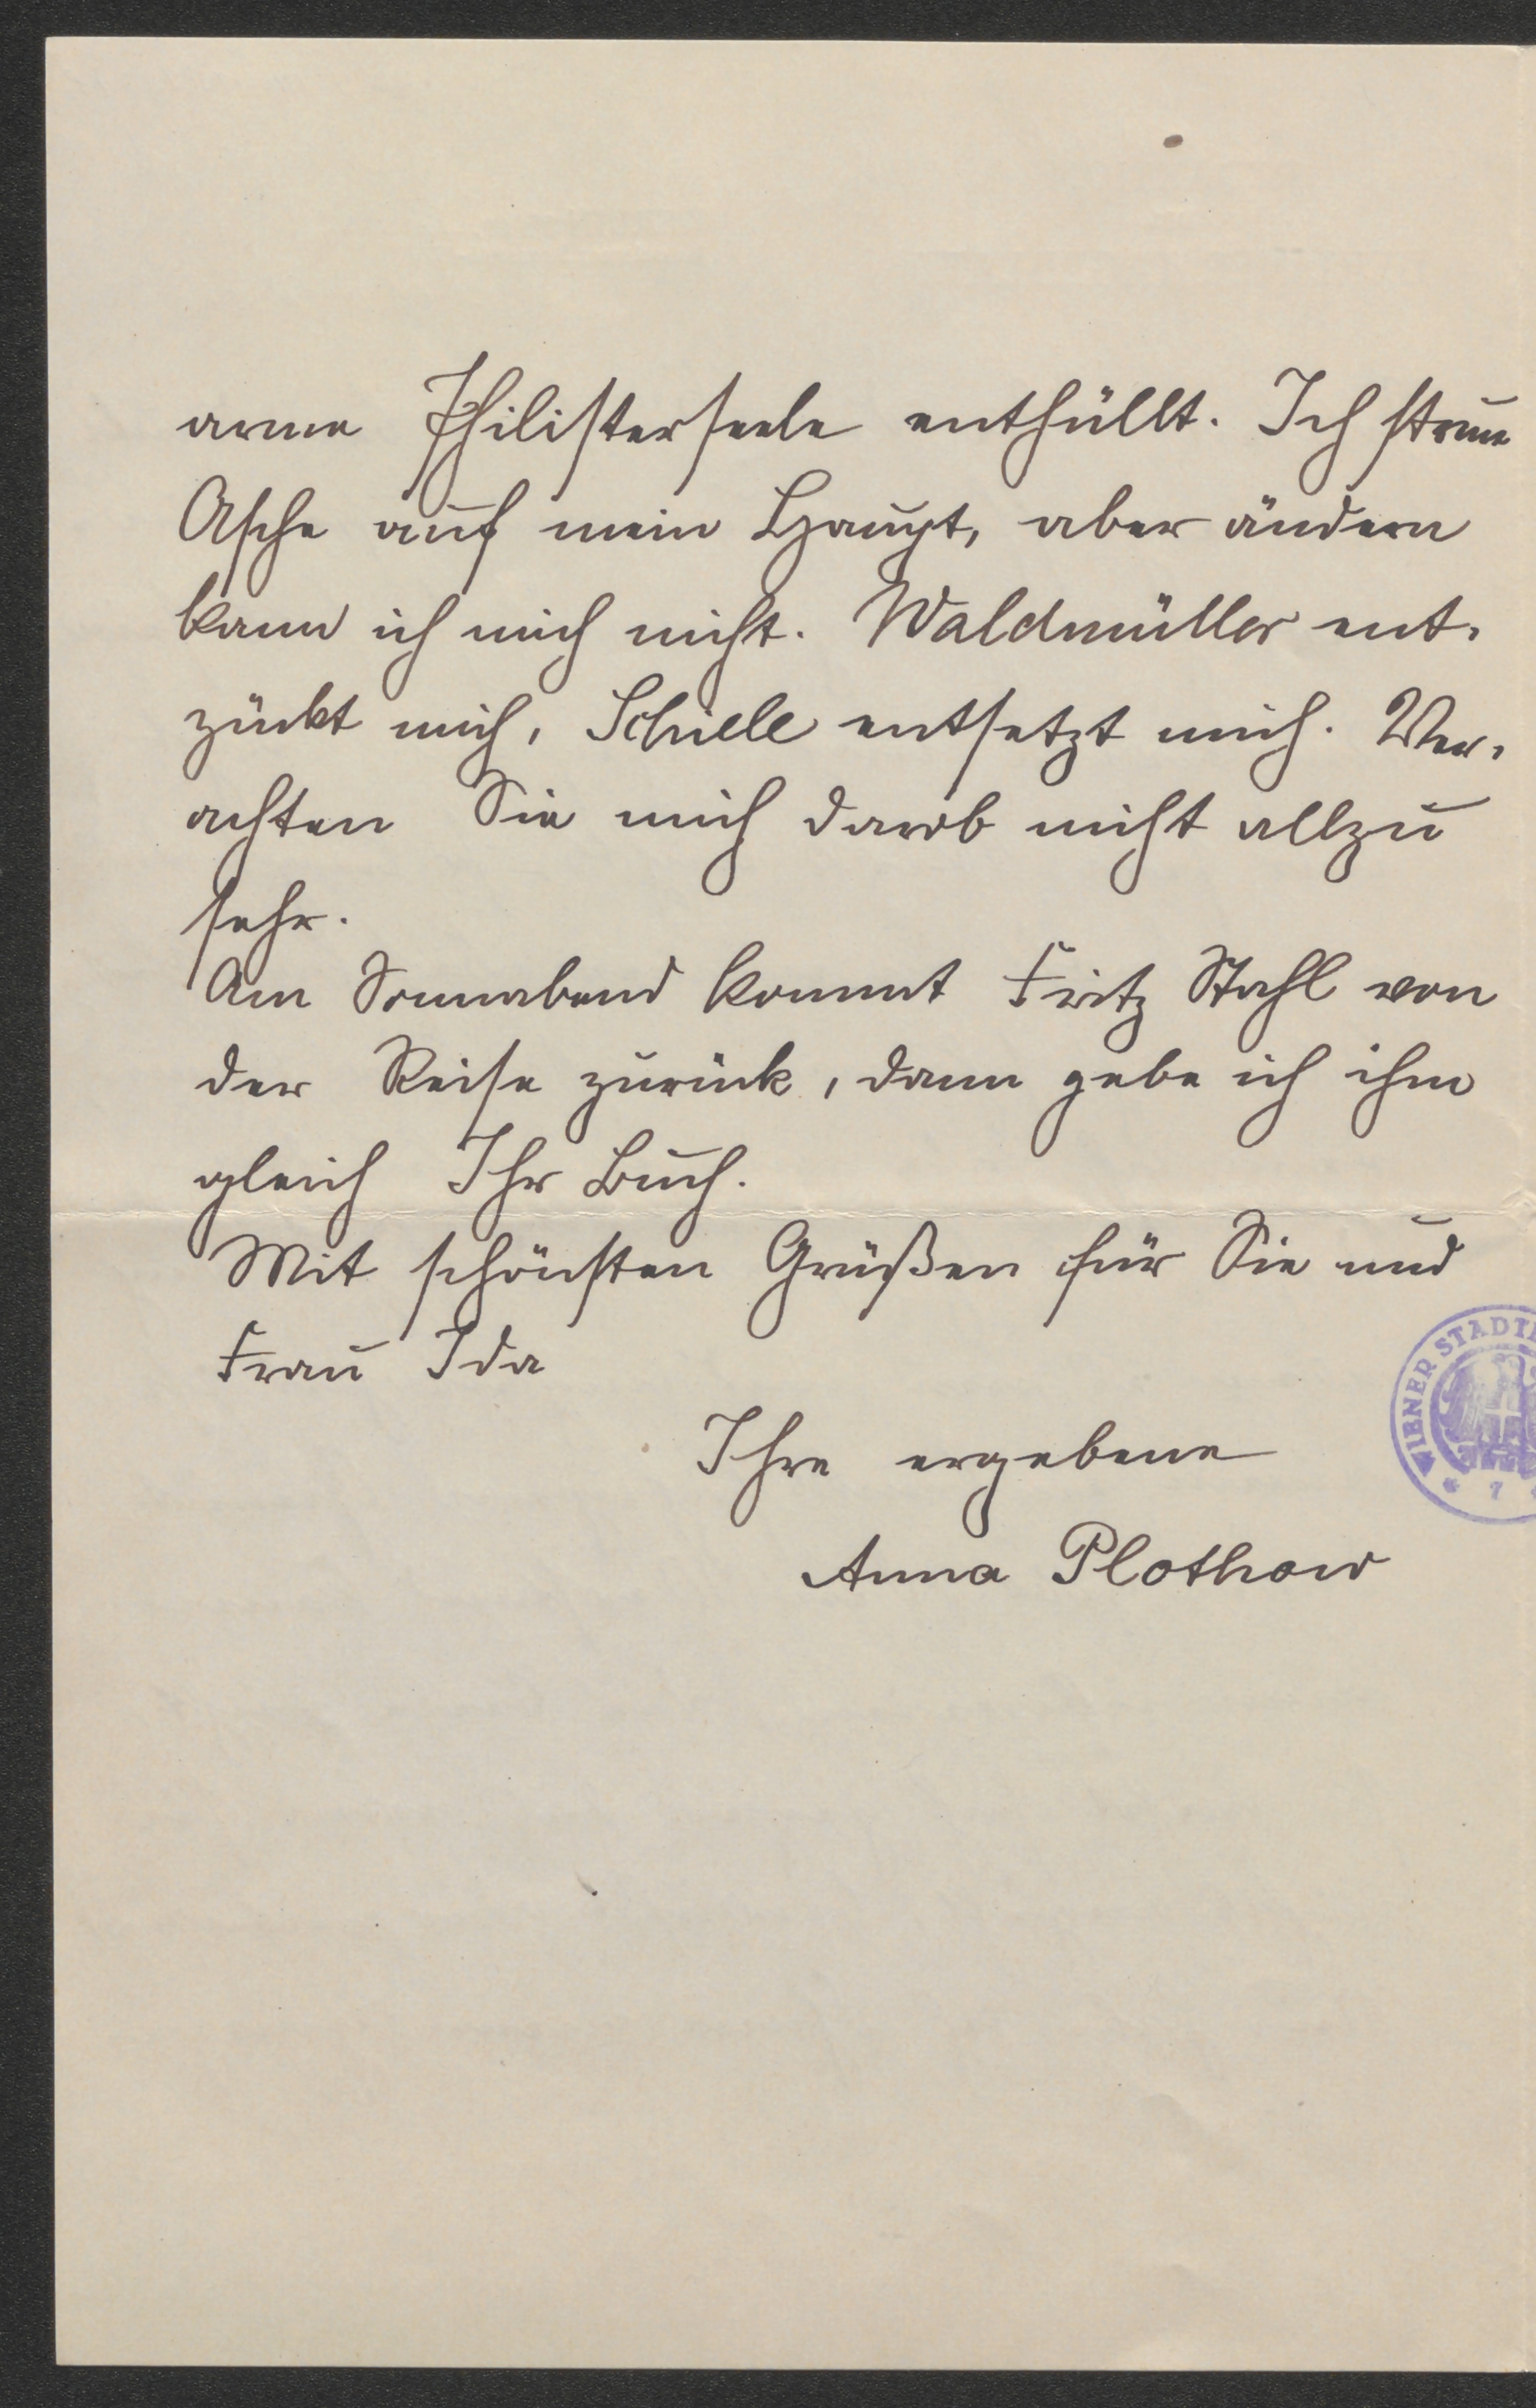 arme Philisterseele enthüllt. Ich streue
Asche auf mein Haupt, aber ändern
kann ich mich nicht. Waldmüller ent-
zückt mich, Schiele entsetzt mich. Ver-
achten Sie mich darob nicht allzu
sehr.
Am Sonnabend kommt Fritz Stahl von
der Reise zurück, dann gebe ich ihm
gleich Ihr Buch.
Mit schönsten Grüßen für Sie und
Frau Ida
Ihre ergebene
Anna Plothow
WIENER STADT
7